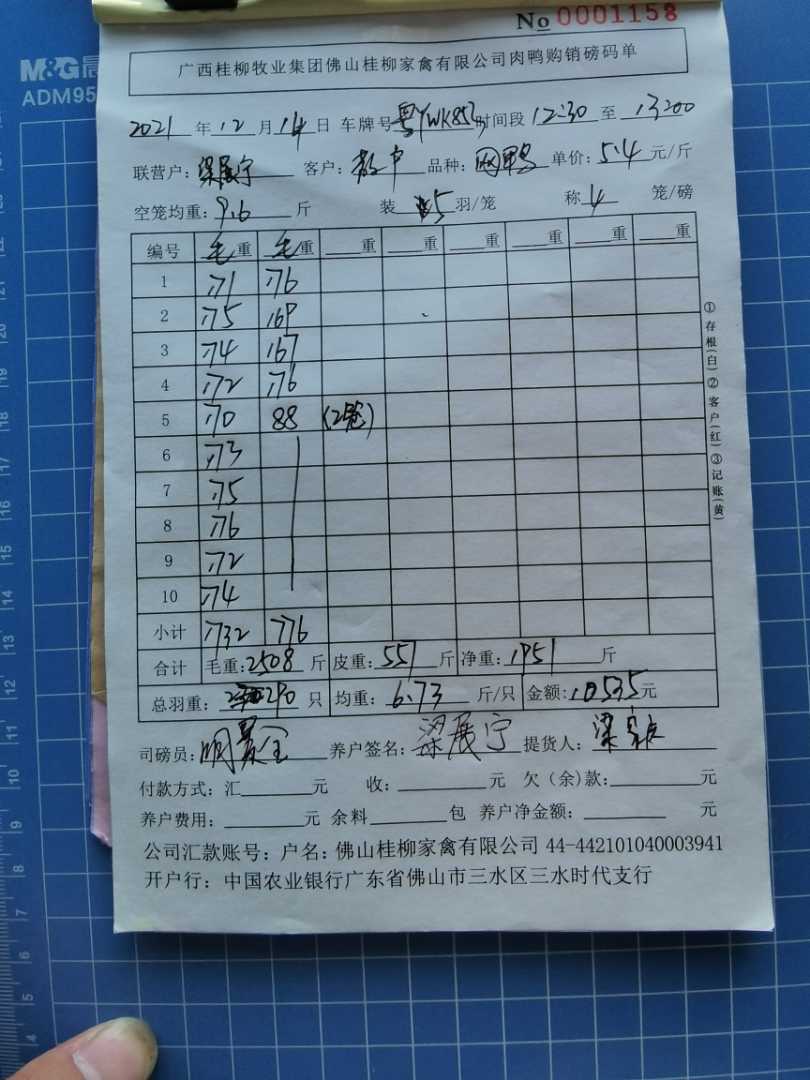 M&G
ADM95
No 0001158
广西桂柳牧业集团佛山桂柳家禽有限公司肉鸭购销磅码单
2021 年 12 月 14 日 车牌号 粤YWK85 时间段 12:30 至 13:00
联营户: 梁展宁 客户: 散户 品种: 肉鸭 单价: 5.4 元/斤
空笼均重: 9.6 斤 装 5 羽/笼 称 4 笼/磅
编号 毛重 毛重 重 重 重 重 重 重
1 171 176
2 175 169
3 174 167
4 172 176
5 170 88 (2笼)
6 173
7 175
8 176
9 172
10 174
小计 1732 776
合计 毛重: 2508 斤 皮重: 557 斤 净重: 1951 斤
总羽重: 290 只 均重: 6.73 斤/只 金额: 10535 元
司磅员: 养户签名: 梁展宁 提货人: 梁
付款方式: 汇 元 收: 元 欠(余)款: 元
养户费用: 元 余料 包 养户净金额: 元
公司汇款账号: 户名: 佛山桂柳家禽有限公司 44-442101040003941
开户行: 中国农业银行广东省佛山市三水区三水时代支行
①存根(白)②客户(红)③记账(黄)